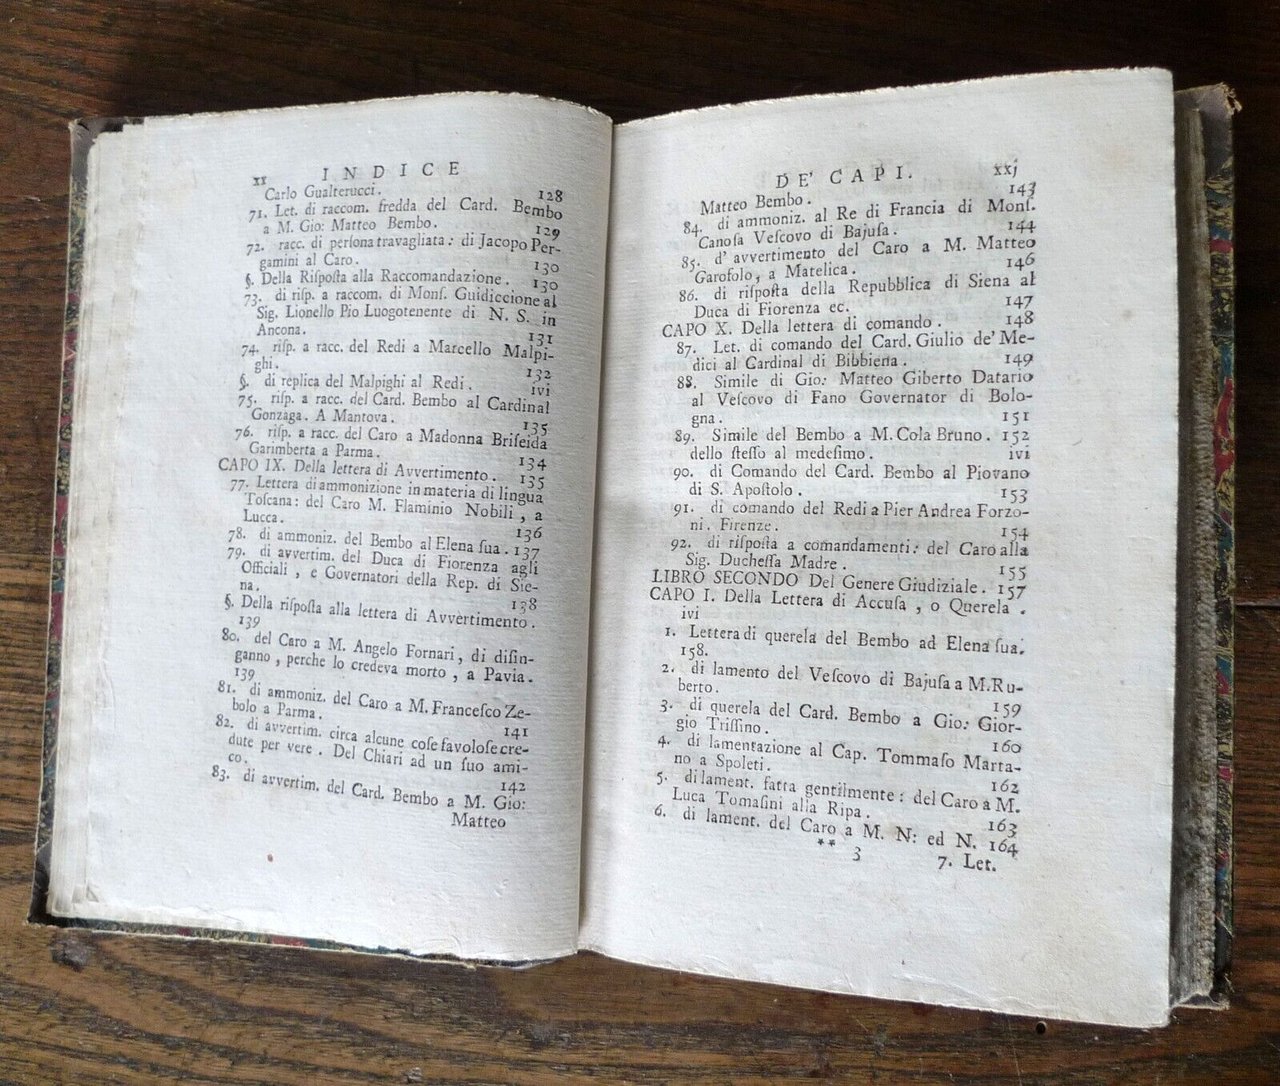 xx INDICE
Carlo Gualterucci. 128
71. Let. di raccom. fredda del Card. Bembo
a M. Gio: Matteo Bembo. 129
72. racc. di perſona travagliata: di Jacopo Per-
gamini al Caro. 130
§. Della Riſpoſta alla Raccomandazione. 130
73. di riſp. a raccom. di Monſ. Guidiccione al
Sig. Lionello Pio Luogotenente di N. S. in
Ancona. 131
74. riſp. a racc. del Redi a Marcello Malpi-
ghi. 132
§. di replica del Malpighi al Redi. ivi
75. riſp. a racc. del Card. Bembo al Cardinal
Gonzaga. A Mantova. 135
76. riſp. a racc. del Caro a Madonna Briſeida
Garimberta a Parma. 134
CAPO IX. Della lettera di Avvertimento. 135
77. Lettera di ammonizione in materia di lingua
Toſcana: del Caro M. Flaminio Nobili, a
Lucca. 136
78. di ammoniz. del Bembo al Elena ſua. 137
79. di avvertim. del Duca di Fiorenza agli
Officiali, e Governatori della Rep. di Sie-
na. 138
§. Della riſpoſta alla lettera di Avvertimento.
139
80. del Caro a M. Angelo Fornari, di diſin-
ganno, perche lo credeva morto, a Pavia.
139
81. di ammoniz. del Caro a M. Franceſco Ze-
bolo a Parma. 141
82. di avvertim. circa alcune coſe favoloſe cre-
dute per vere. Del Chiari ad un ſuo ami-
co. 142
83. di avvertim. del Card. Bembo a M. Gio:
Matteo
DE' CAPI. xxj
Matteo Bembo. 143
84. di ammoniz. al Re di Francia di Monſ.
Canoſa Veſcovo di Bajuſa. 144
85. d' avvertimento del Caro a M. Matteo
Garofolo, a Matelica. 146
86. di riſpoſta della Repubblica di Siena al
Duca di Fiorenza ec. 147
CAPO X. Della lettera di comando. 148
87. Let. di comando del Card. Giulio de' Me-
dici al Cardinal di Bibbiena. 149
88. Simile di Gio: Matteo Giberto Datario
al Veſcovo di Fano Governator di Bolo-
gna. 151
89. Simile del Bembo a M. Cola Bruno. 152
dello ſteſſo al medeſimo. ivi
90. di Comando del Card. Bembo al Piovano
di S. Apoſtolo. 153
91. di comando del Redi a Pier Andrea Forzo-
ni. Firenze. 154
92. di riſpoſta a comandamenti: del Caro alla
Sig. Ducheſſa Madre. 155
LIBRO SECONDO Del Genere Giudiziale. 157
CAPO I. Della Lettera di Accuſa, o Querela.
ivi
1. Lettera di querela del Bembo ad Elena ſua.
158.
2. di lamento del Veſcovo di Bajuſa a M. Ru-
berto. 159
3. di querela del Card. Bembo a Gio: Gior-
gio Triſſino. 160
4. di lamentazione al Cap. Tommaſo Marta-
no a Spoleti. 162
5. di lament. fatta gentilmente: del Caro a M.
Luca Tomaſini alla Ripa. 163
6. di lament. del Caro a M. N: ed N. 164
** 3 7. Let.